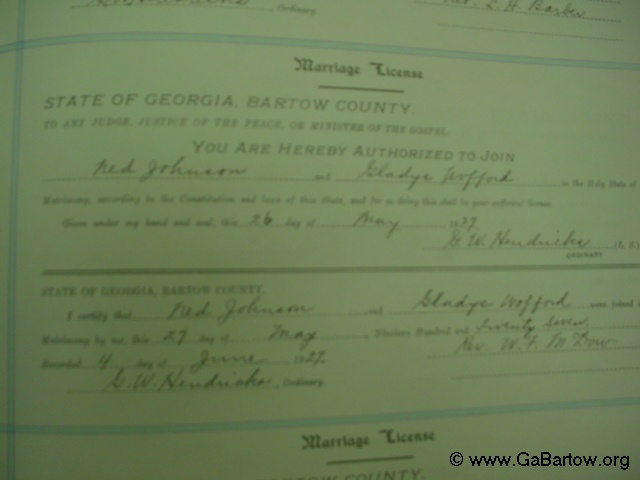 Ordinary.
Rev. L. H. Barber
Marriage License
STATE OF GEORGIA, BARTOW COUNTY.
TO ANY JUDGE, JUSTICE OF THE PEACE, OR MINISTER OF THE GOSPEL:
YOU ARE HEREBY AUTHORIZED TO JOIN
Ned Johnson and Gladys Wofford in the Holy State of
Matrimony, according to the Constitution and laws of this State, and for so doing this shall be your sufficient license.
Given under my hand and seal, this 26 day of May 1927
G. W. Hendricks
ORDINARY
STATE OF GEORGIA, BARTOW COUNTY.
I certify that Ned Johnson and Gladys Wofford were joined
Matrimony by me, this 27 day of May, Nineteen Hundred and Twenty Seven.
Recorded 4 day of June 1927. Rev. W. F. McDow
G. W. Hendricks, Ordinary.
Marriage License
BARTOW COUNTY.
© www.GaBartow.org